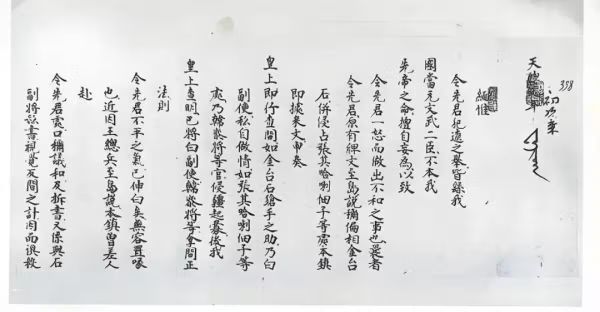 338
天聰 年
初次來
惟
令先君犯邊之舉皆緣我
國當先文武二臣不本我
先帝之命擅自妄為以致
令先君一怒而做出不和之事也曩者
令先君原有稗文至島說稱偏相金台
石併侵占張其哈喇佃子等處本鎮
即據來文申奏
皇上即行查問如金台石 手之助乃白
副使私自做情如張其哈喇佃子等
處乃韓叅將等官侵疆起釁 我
皇上查明已將白副使韓叅將等拿問正
法則
令先君不平之氣已伸白矣無容置喙
也近因王總兵至島說本鎮曾差人
赴
令先君處口稱議和及拆書又係與石
副將 書視覺反間之計因而誤殺